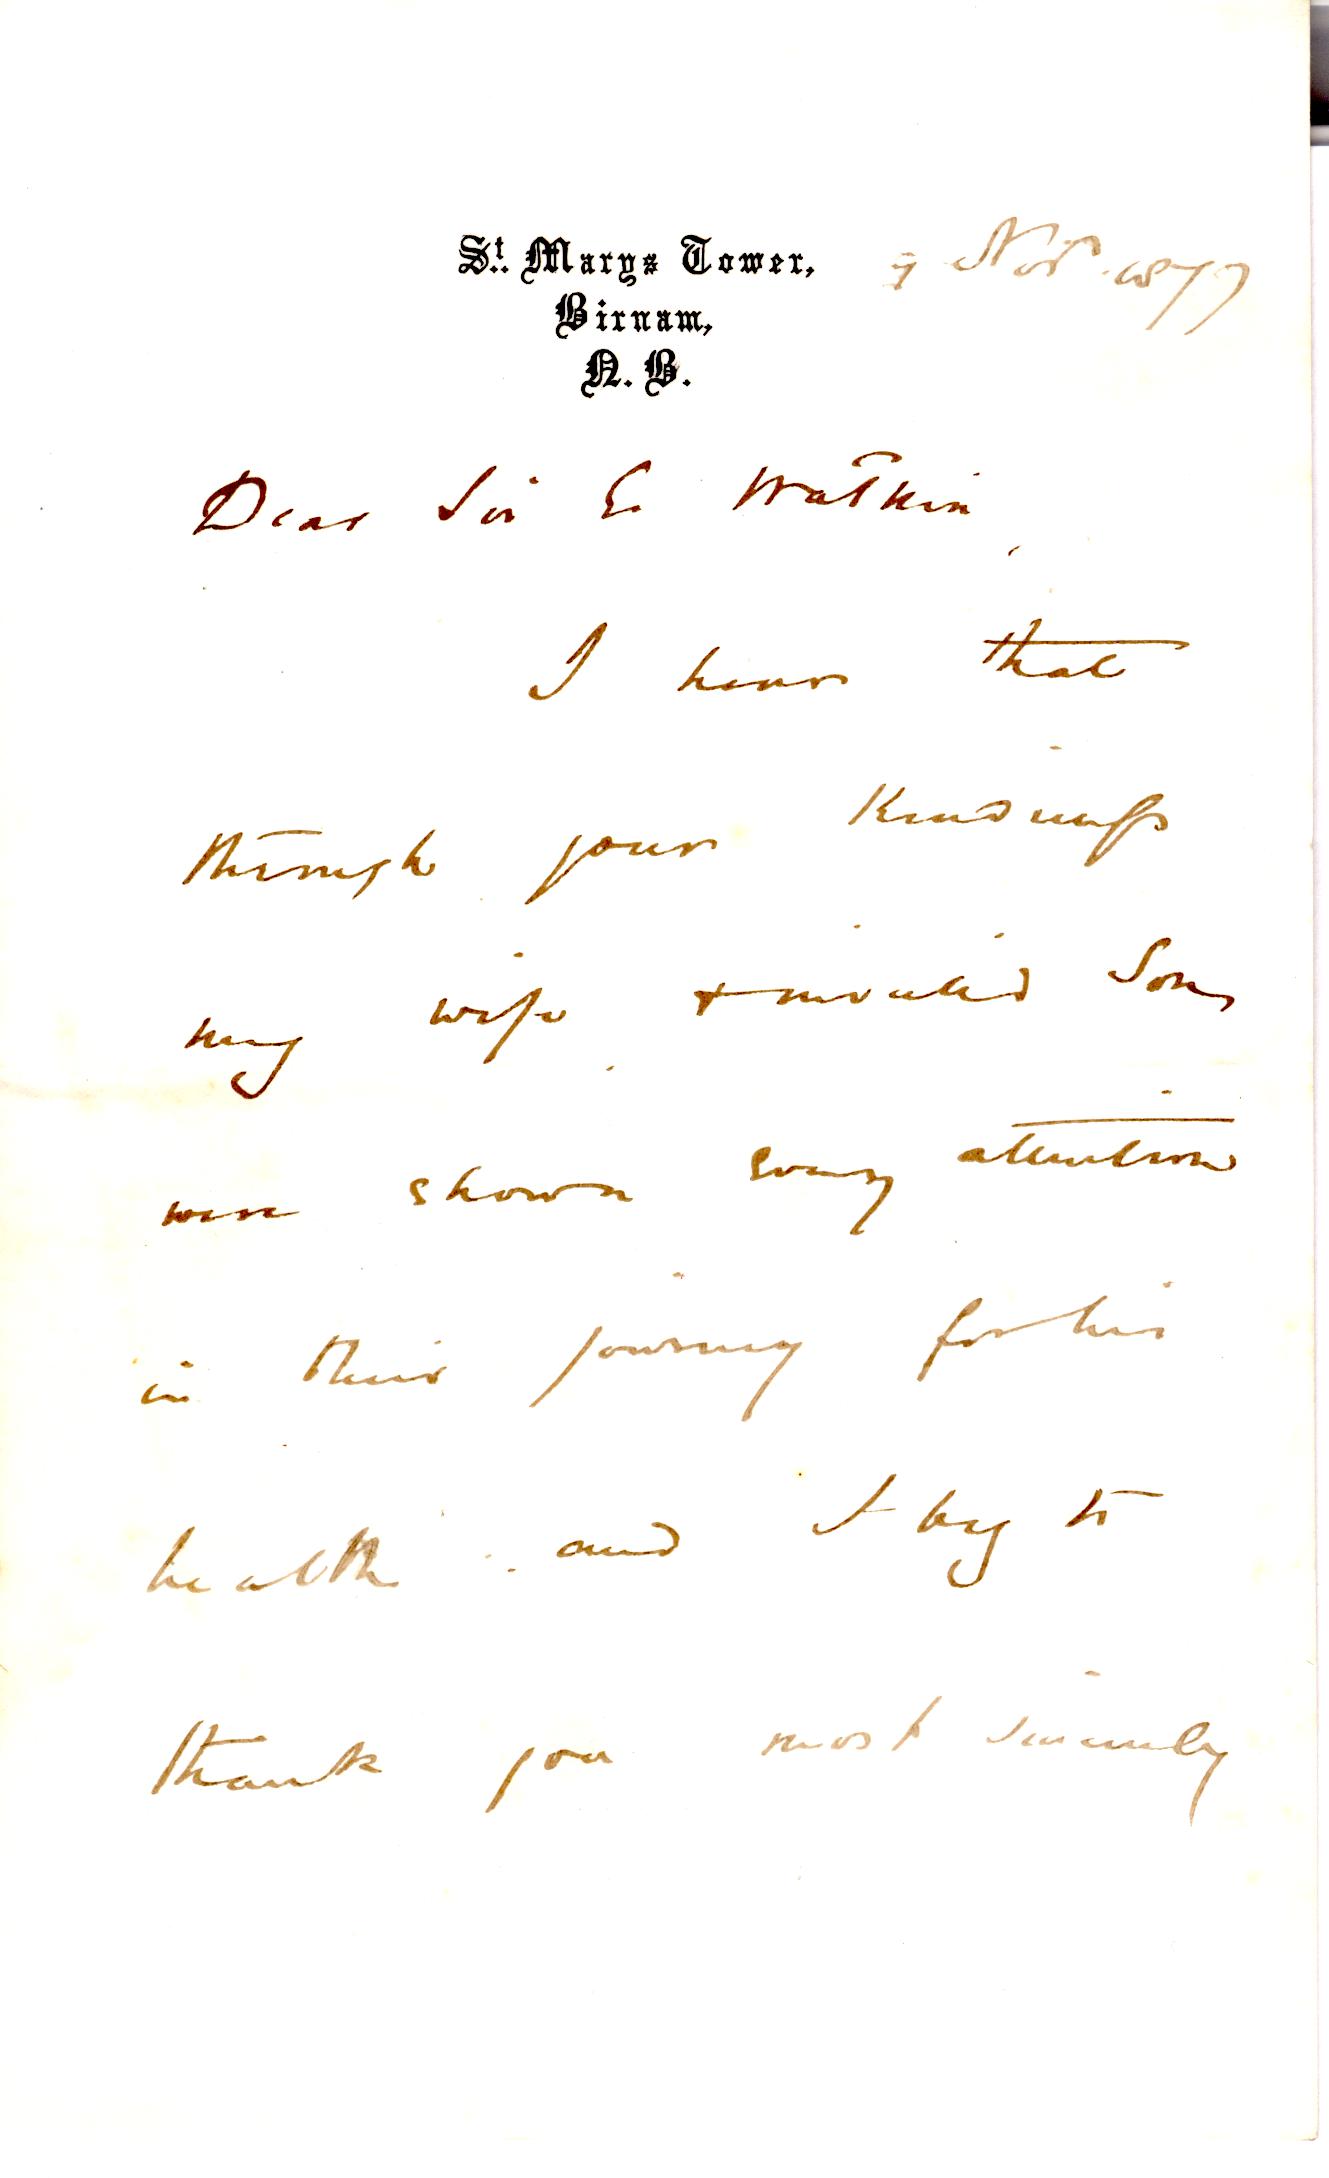 St. Marys Tower,
Birnam,
N. B.
Novr. 1877
Dear Sir E. Watkin,
I hear that
through your kindness
my wife & invalid Son,
were shown every attention
in their journey for his
health and I beg to
thank you most sincerely